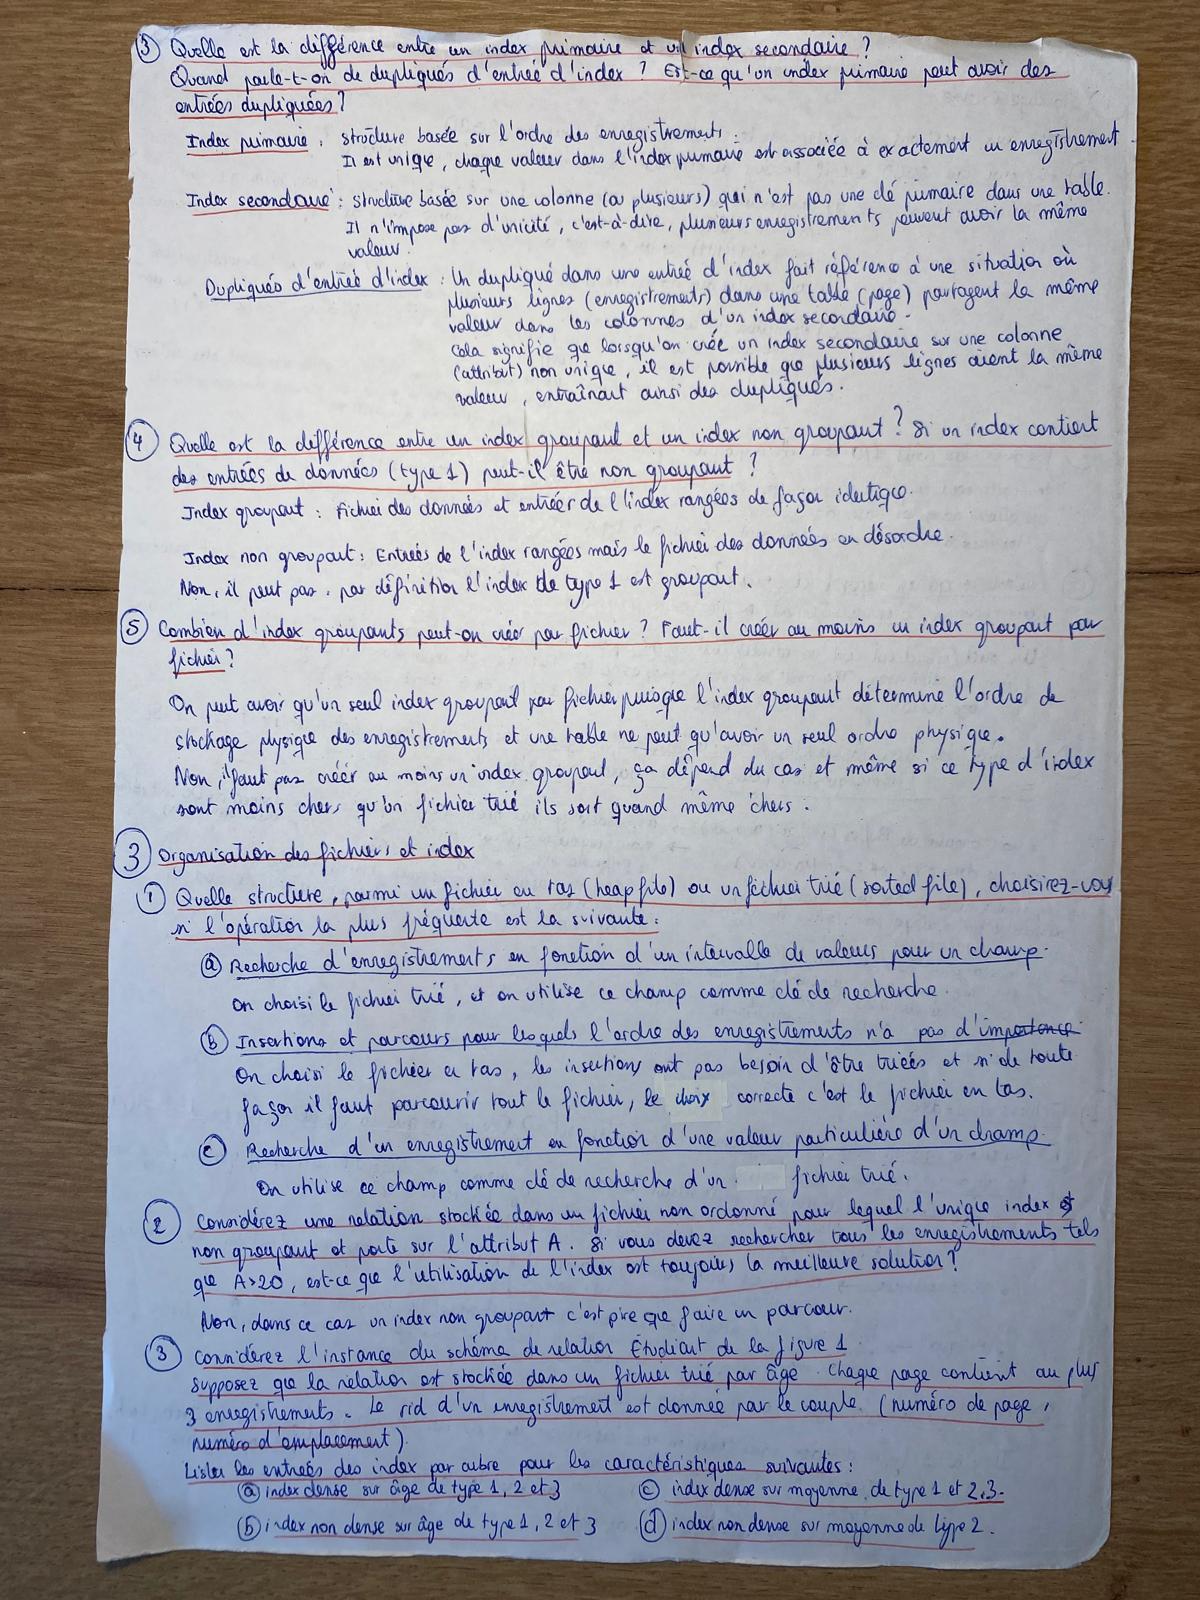 ③ Quelle est la différence entre un index primaire et un index secondaire ?
Quand parle-t-on de dupliqués d'entrée d'index ? Est-ce qu'un index primaire peut avoir des
entrées dupliquées ?
Index primaire : structure basée sur l'ordre des enregistrements.
Il est unique, chaque valeur dans l'index primaire est associée à exactement un enregistrement.
Index secondaire : structure basée sur une colonne (ou plusieurs) qui n'est pas une clé primaire dans une table.
Il n'impose pas d'unicité, c'est-à-dire, plusieurs enregistrements peuvent avoir la même
valeur.
Dupliqués d'entrée d'index : Un dupliqué dans une entrée d'index fait référence à une situation où
plusieurs lignes (enregistrements) dans une table (page) partagent la même
valeur dans les colonnes d'un index secondaire.
Cela signifie que lorsqu'on crée un index secondaire sur une colonne
(attribut) non unique, il est possible que plusieurs lignes aient la même
valeur, entraînant ainsi des dupliqués.
④ Quelle est la différence entre un index groupant et un index non groupant ? Si un index contient
des entrées de données (type 1) peut-il être non groupant ?
Index groupant : Fichier des données et entrées de l'index rangées de façon identique.
Index non groupant : Entrées de l'index rangées mais le fichier des données en désordre.
Non, il peut pas, par définition l'index de type 1 est groupant.
⑤ Combien d'index groupants peut-on créer par fichier ? Faut-il créer au moins un index groupant par
fichier ?
On peut avoir qu'un seul index groupant par fichier puisque l'index groupant détermine l'ordre de
stockage physique des enregistrements et une table ne peut qu'avoir un seul ordre physique.
Non, il faut pas créer au moins un index groupant, ça dépend du cas et même si ce type d'index
sont moins chers qu'un fichier trié ils sont quand même chers.
③ Organisation des fichiers et index
① Quelle structure, parmi un fichier en tas (heap file) ou un fichier trié (sorted file), choisirez-vous
si l'opération la plus fréquente est la suivante :
ⓐ Recherche d'enregistrements en fonction d'un intervalle de valeurs pour un champ.
On choisi le fichier trié, et on utilise ce champ comme clé de recherche.
ⓑ Insertions et parcours pour lesquels l'ordre des enregistrements n'a pas d'importance.
On choisi le fichier en tas, les insertions ont pas besoin d'être triées et si de toute
façon il faut parcourir tout le fichier, le choix correcte c'est le fichier en tas.
ⓒ Recherche d'un enregistrement en fonction d'une valeur particulière d'un champ.
On utilise ce champ comme clé de recherche d'un fichier trié.
② Considérez une relation stockée dans un fichier non ordonné pour lequel l'unique index est
non groupant et porte sur l'attribut A. Si vous devez rechercher tous les enregistrements tels
que A>20, est-ce que l'utilisation de l'index est toujours la meilleure solution ?
Non, dans ce cas un index non groupant c'est pire que faire un parcour.
③ Considérez l'instance du schéma de relation Étudiant de la figure 1
Supposez que la relation est stockée dans un fichier trié par âge. Chaque page contient au plus
3 enregistrements. Le rid d'un enregistrement est donnée par le couple (numéro de page,
numéro d'emplacement).
Lister les entrées des index par arbre pour les caractéristiques suivantes :
ⓐ index dense sur âge de type 1, 2 et 3 ⓒ index dense sur moyenne de type 1 et 2,3.
ⓑ index non dense sur âge de type 1, 2 et 3 ⓓ index non dense sur moyenne de type 2.